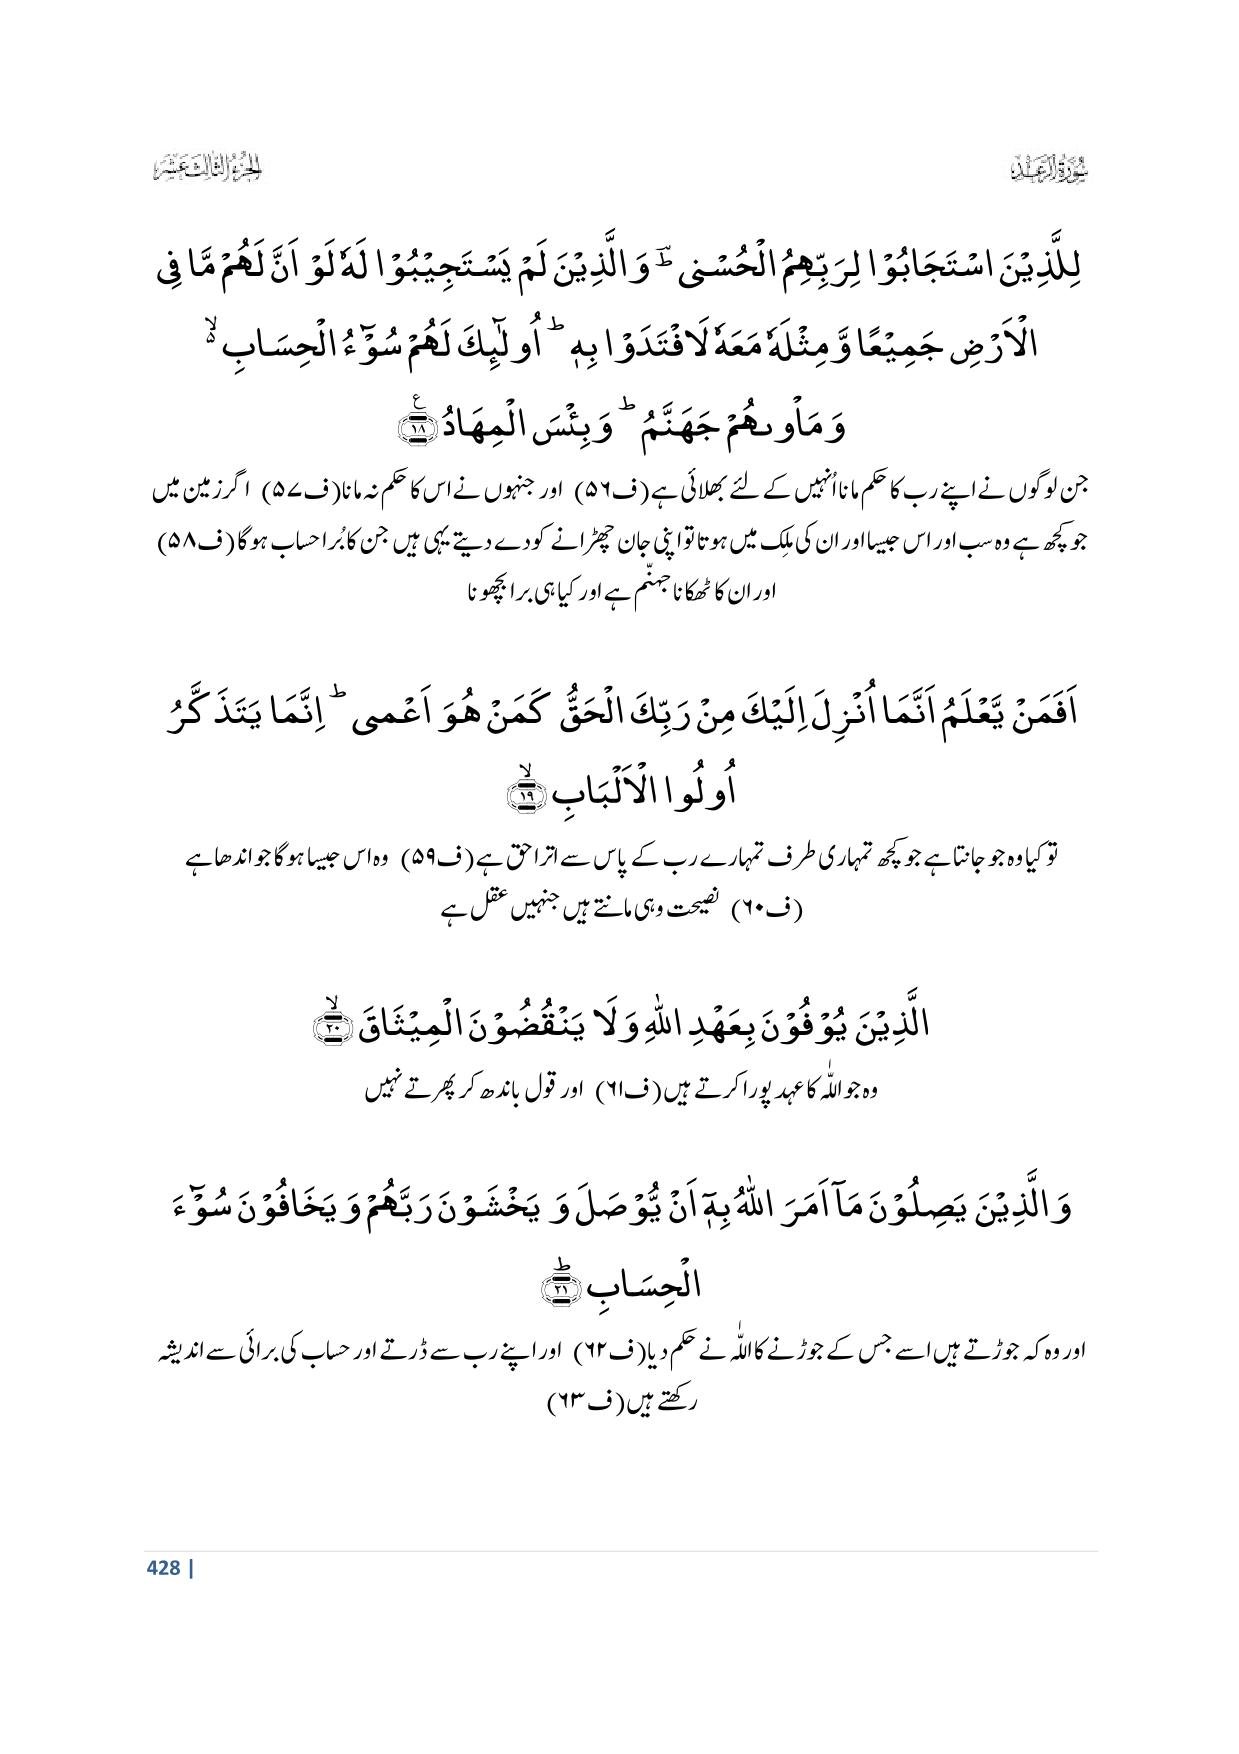 سُوْرَۃُ الرَّعْد
الجُزْءُ الثَّالِثَ عَشَر
لِلَّذِیْنَ اسْتَجَابُوْا لِرَبِّهِمُ الْحُسْنٰى ؕؔ وَ الَّذِیْنَ لَمْ یَسْتَجِیْبُوْا لَهٗ لَوْ اَنَّ لَهُمْ مَّا فِی
الْاَرْضِ جَمِیْعًا وَّ مِثْلَهٗ مَعَهٗ لَافْتَدَوْا بِهٖ ؕ اُولٰٓىِٕكَ لَهُمْ سُوْٓءُ الْحِسَابِ ۙ۬
وَ مَاْوٰىهُمْ جَهَنَّمُ ؕ وَ بِئْسَ الْمِهَادُ ﴿۱۸﴾ ع
جن لوگوں نے اپنے رب کا حکم مانا اُنہیں کے لئے بھلائی ہے(ف۵۶) اور جنہوں نے اس کا حکم نہ مانا(ف۵۷) اگر زمین میں
جو کچھ ہے وہ سب اور اس جیسا اور ان کی مِلک میں ہوتا تو اپنی جان چھڑانے کو دے دیتے یہی ہیں جن کا بُرا حساب ہوگا(ف۵۸)
اور ان کا ٹھکانا جہنّم ہے اور کیا ہی برا بچھونا
اَفَمَنْ یَّعْلَمُ اَنَّمَاۤ اُنْزِلَ اِلَیْكَ مِنْ رَبِّكَ الْحَقُّ كَمَنْ هُوَ اَعْمٰى ؕ اِنَّمَا یَتَذَكَّرُ
اُولُوا الْاَلْبَابِ ﴿ۙ۱۹﴾
تو کیا وہ جو جانتا ہے جو کچھ تمہاری طرف تمہارے رب کے پاس سے اترا حق ہے(ف۵۹) وہ اس جیسا ہوگا جو اندھا ہے
(ف۶۰) نصیحت وہی مانتے ہیں جنہیں عقل ہے
الَّذِیْنَ یُوْفُوْنَ بِعَهْدِ اللّٰهِ وَ لَا یَنْقُضُوْنَ الْمِیْثَاقَ ﴿ۙ۲۰﴾
وہ جو اللّٰہ کا عہد پورا کرتے ہیں(ف۶۱) اور قول باندھ کر پھرتے نہیں
وَ الَّذِیْنَ یَصِلُوْنَ مَاۤ اَمَرَ اللّٰهُ بِهٖۤ اَنْ یُّوْصَلَ وَ یَخْشَوْنَ رَبَّهُمْ وَ یَخَافُوْنَ سُوْٓءَ
الْحِسَابِ ﴿ؕ۲۱﴾
اور وہ کہ جوڑتے ہیں اسے جس کے جوڑنے کا اللّٰہ نے حکم دیا(ف۶۲) اور اپنے رب سے ڈرتے اور حساب کی برائی سے اندیشہ
رکھتے ہیں(ف۶۳)
428 |